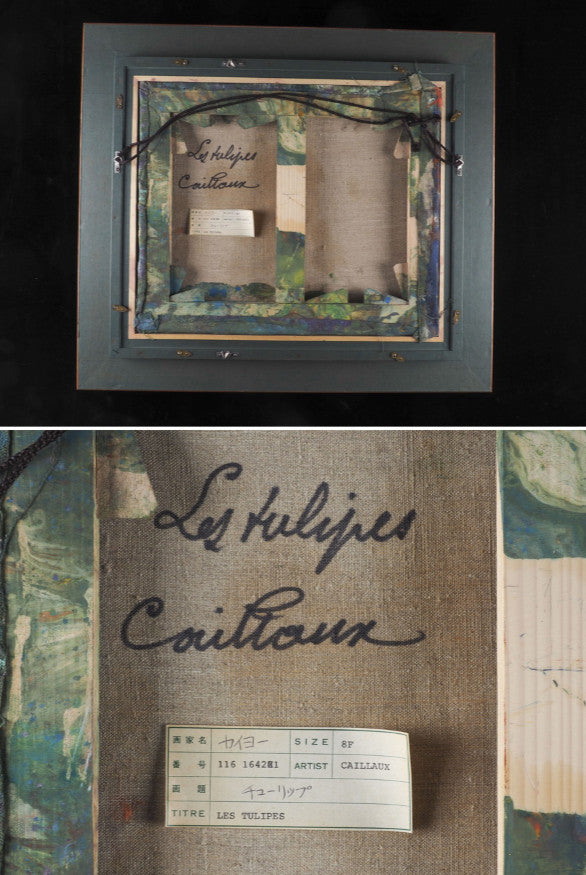 Les tulipes
Caillaux
Les tulipes
Caillaux
画家名 カイヨー SIZE 8F
番号 116 164281 ARTIST CAILLAUX
画題 チューリップ
TITRE LES TULIPES